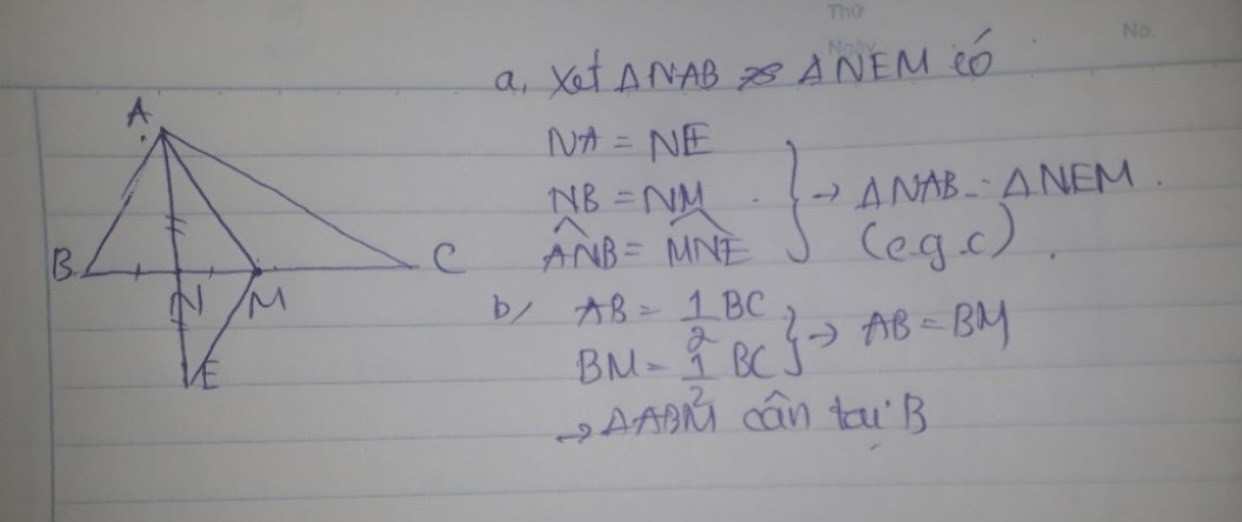 Thứ
Ngày
No.
a, Xét ΔNAB ΔNEM có
NA = NE
NB = NM
ANB = MNE
} → ΔNAB = ΔNEM.
(c.g.c).
b/ AB = 1/2 BC
BM = 1/2 BC
} → AB = BM
→ ΔABM cân tại B
A
B
C
N
M
E